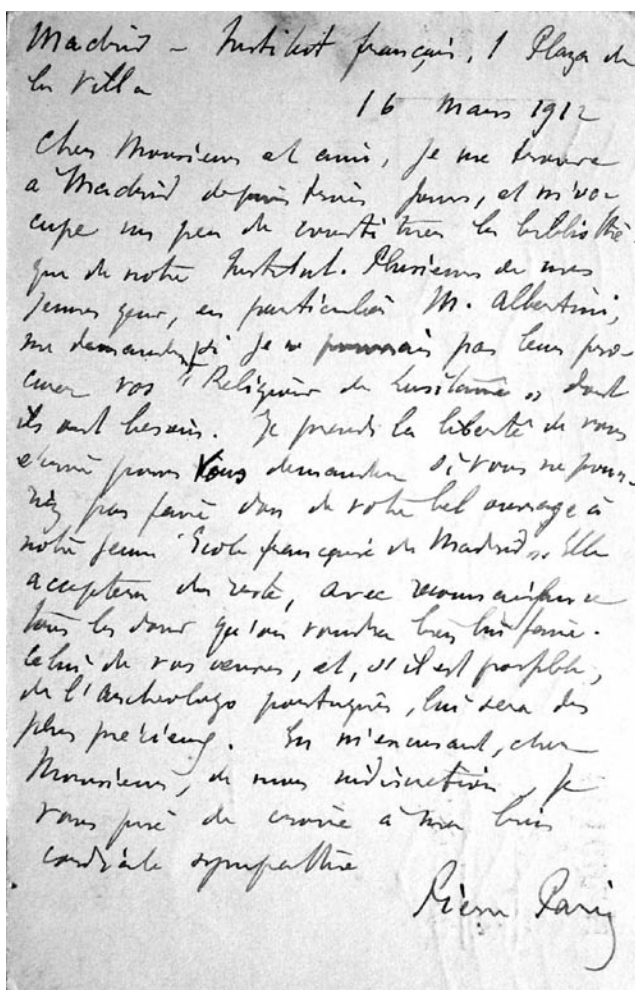 Madrid – Institut français, 1 Plaza de
la Villa
16 mars 1912
Cher Monsieur et ami, je me trouve
à Madrid depuis trois jours, et m'oc-
cupe un peu de constituer la bibliothè-
que de notre Institut. Plusieurs de mes
jeunes gens, en particulier M. Albertini,
me demandent si je ne pourrais pas leur pro-
curer vos "Religiões da Lusitania" dont
ils ont besoin. Je prends la liberté de vous
écrire pour vous demander si vous ne pour-
riez pas faire don de votre bel ouvrage à
notre jeune "Ecole française de Madrid". Elle
acceptera du reste, avec reconnaissance
tous les dons qu'on voudra bien lui faire.
Celui de vos œuvres, et, s'il est possible,
de l'Archeologo português, lui sera des
plus précieux. En m'excusant, cher
Monsieur, de mon indiscrétion, je
vous prie de croire à ma bien
cordiale sympathie
Pierre Paris